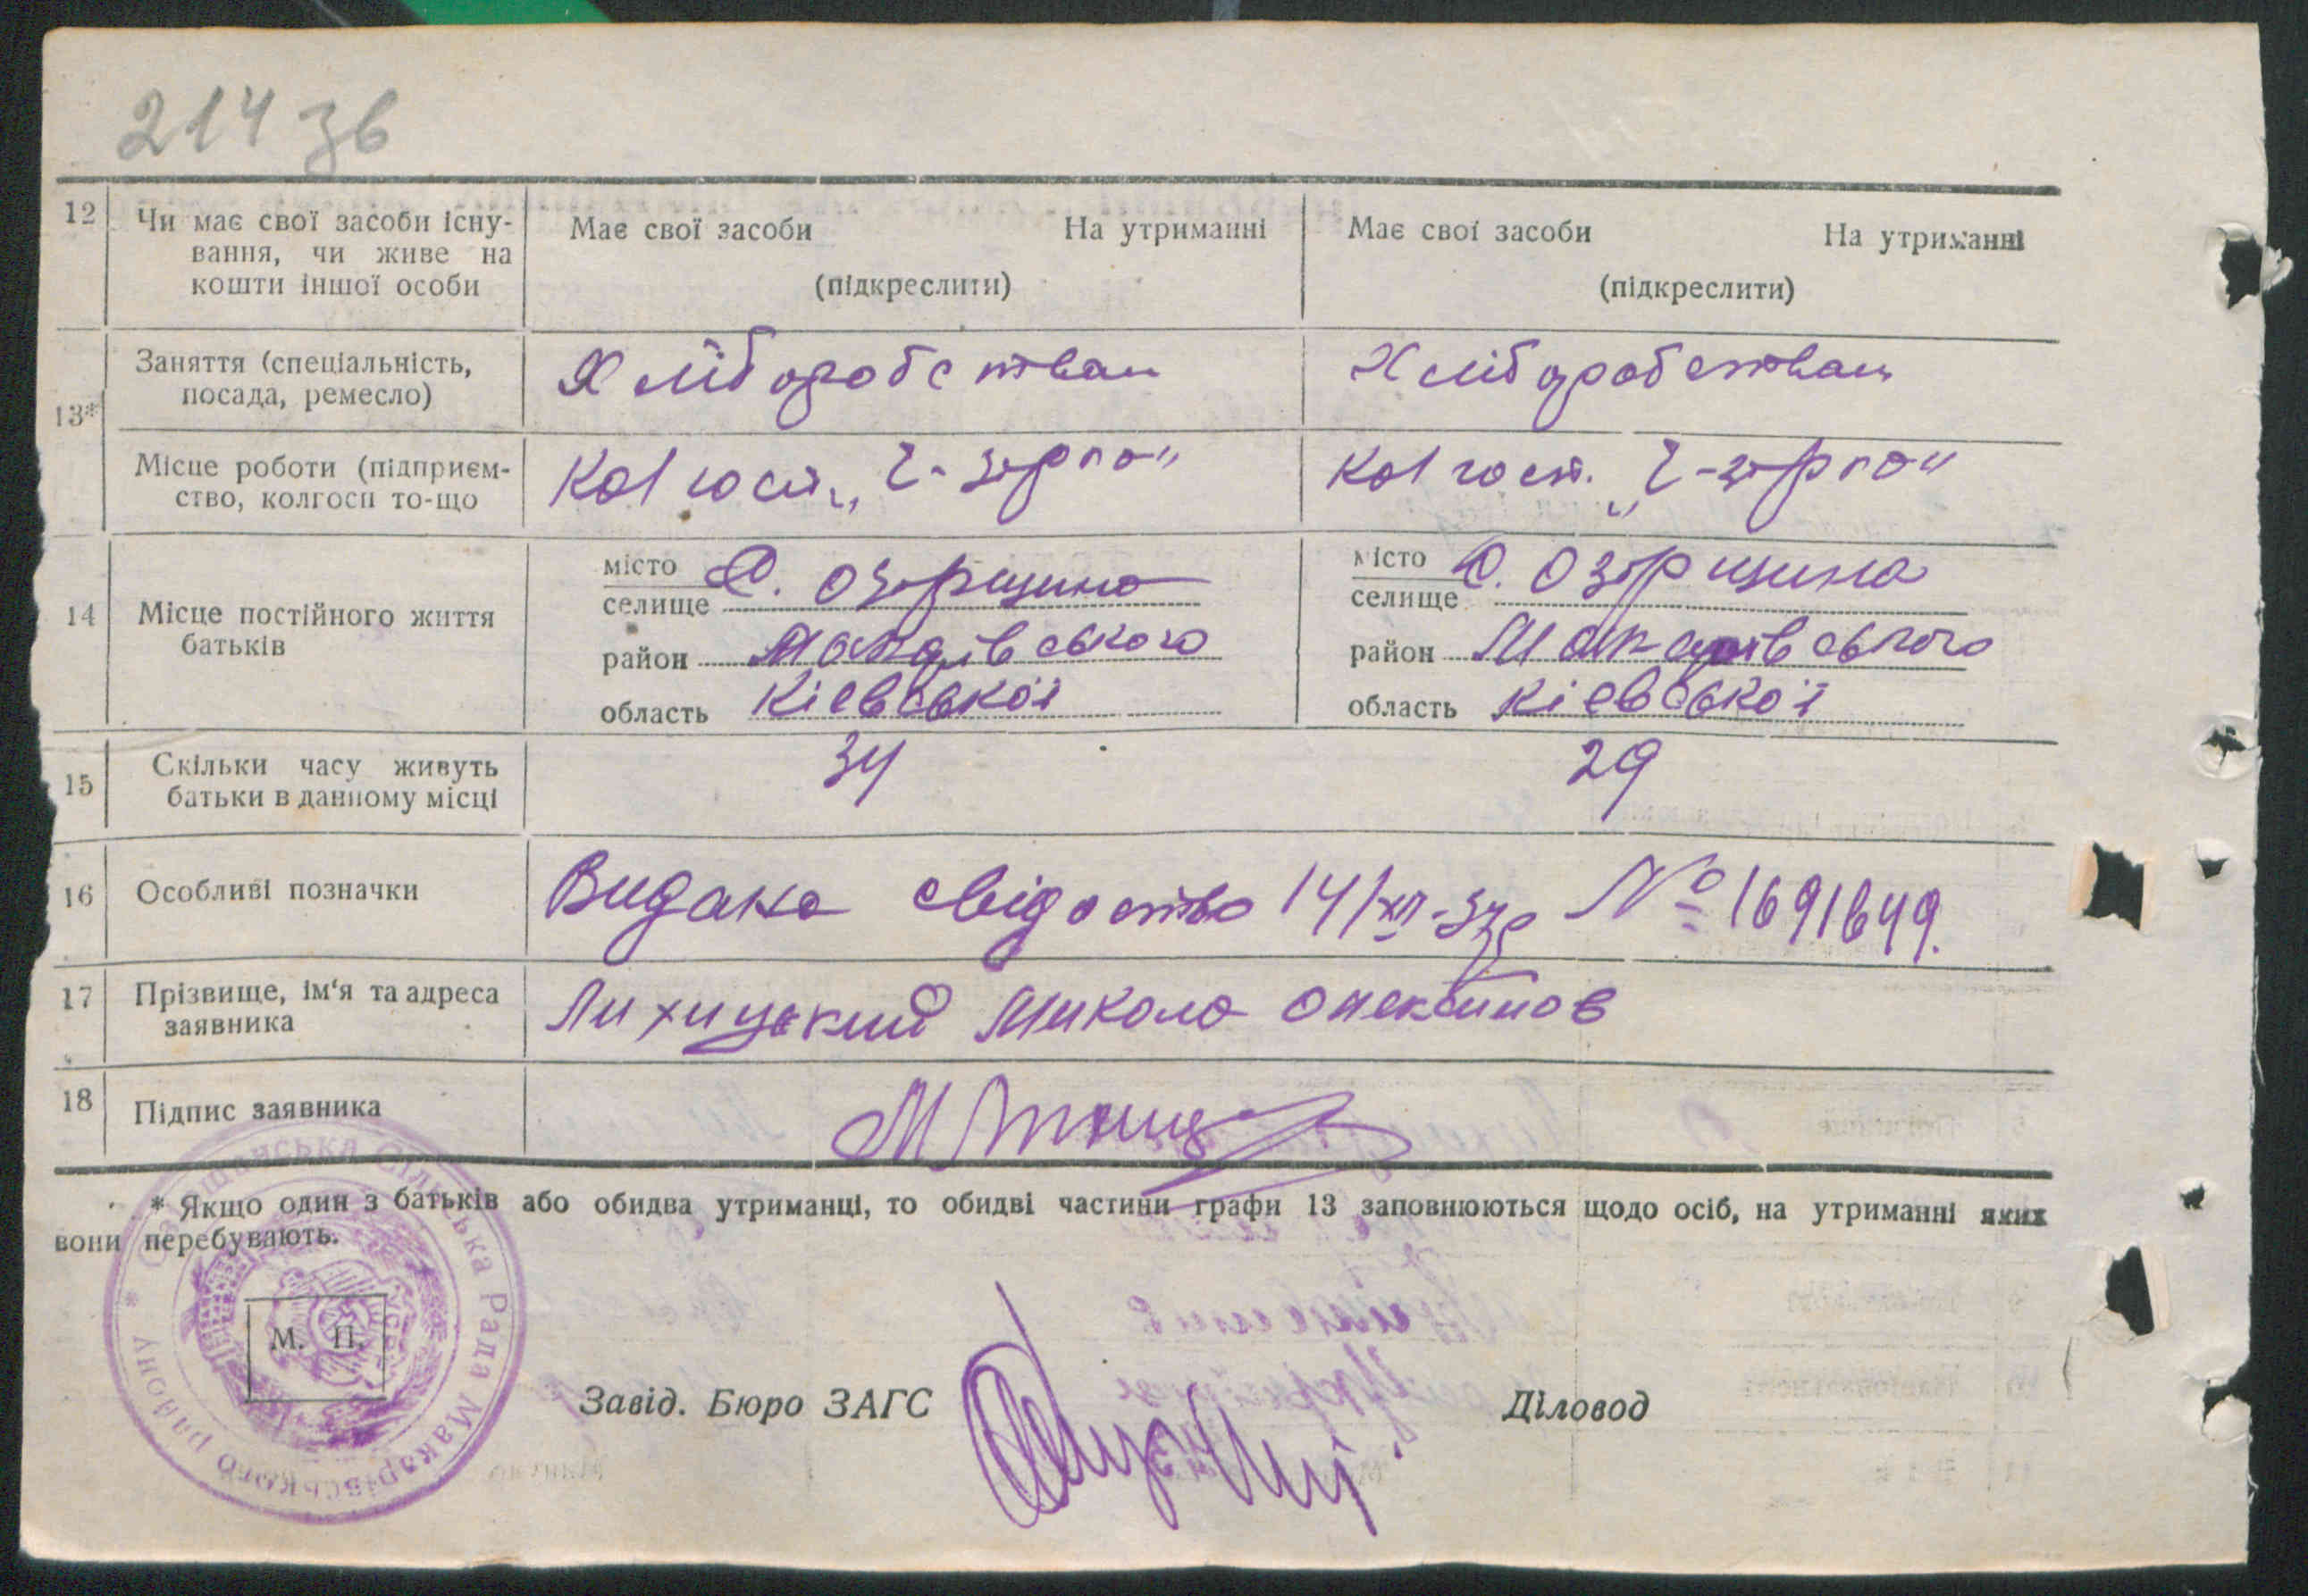 214 зв
12 Чи має свої засоби існу- Має свої засоби На утриманні Має свої засоби На утриманні
вання, чи живе на
кошти іншої особи (підкреслити) (підкреслити)
Заняття (спеціальність, Хліборобством Хліборобством
посада, ремесло)
13*
Місце роботи (підприєм- Колгосп „Ч-зірка" Колгосп. „Ч-зірка"
ство, колгосп то-що
місто С. Озірщина місто С. Озірщина
селище селище
14 Місце постійного життя район Макарівського район Макарівського
батьків
область Кіевської область Кіевської
15 Скільки часу живуть 34 29
батьки в данному місці
16 Особливі позначки Видано свідоство 14/XII-37р № 1691649.
17 Прізвище, ім'я та адреса Лихицький Микола
заявника
18 Підпис заявника
* Якщо один з батьків або обидва утриманці, то обидві частини графи 13 заповнюються щодо осіб, на утриманні яких
вони перебувають.
Сільська Рада Макарівського району *
УСРР
М. П.
Завід. Бюро ЗАГС Діловод